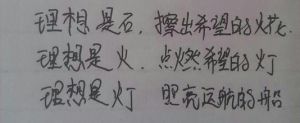 理想是石，擦出希望的火花
理想是火．点燃希望的灯
理想是灯 照亮远航的船